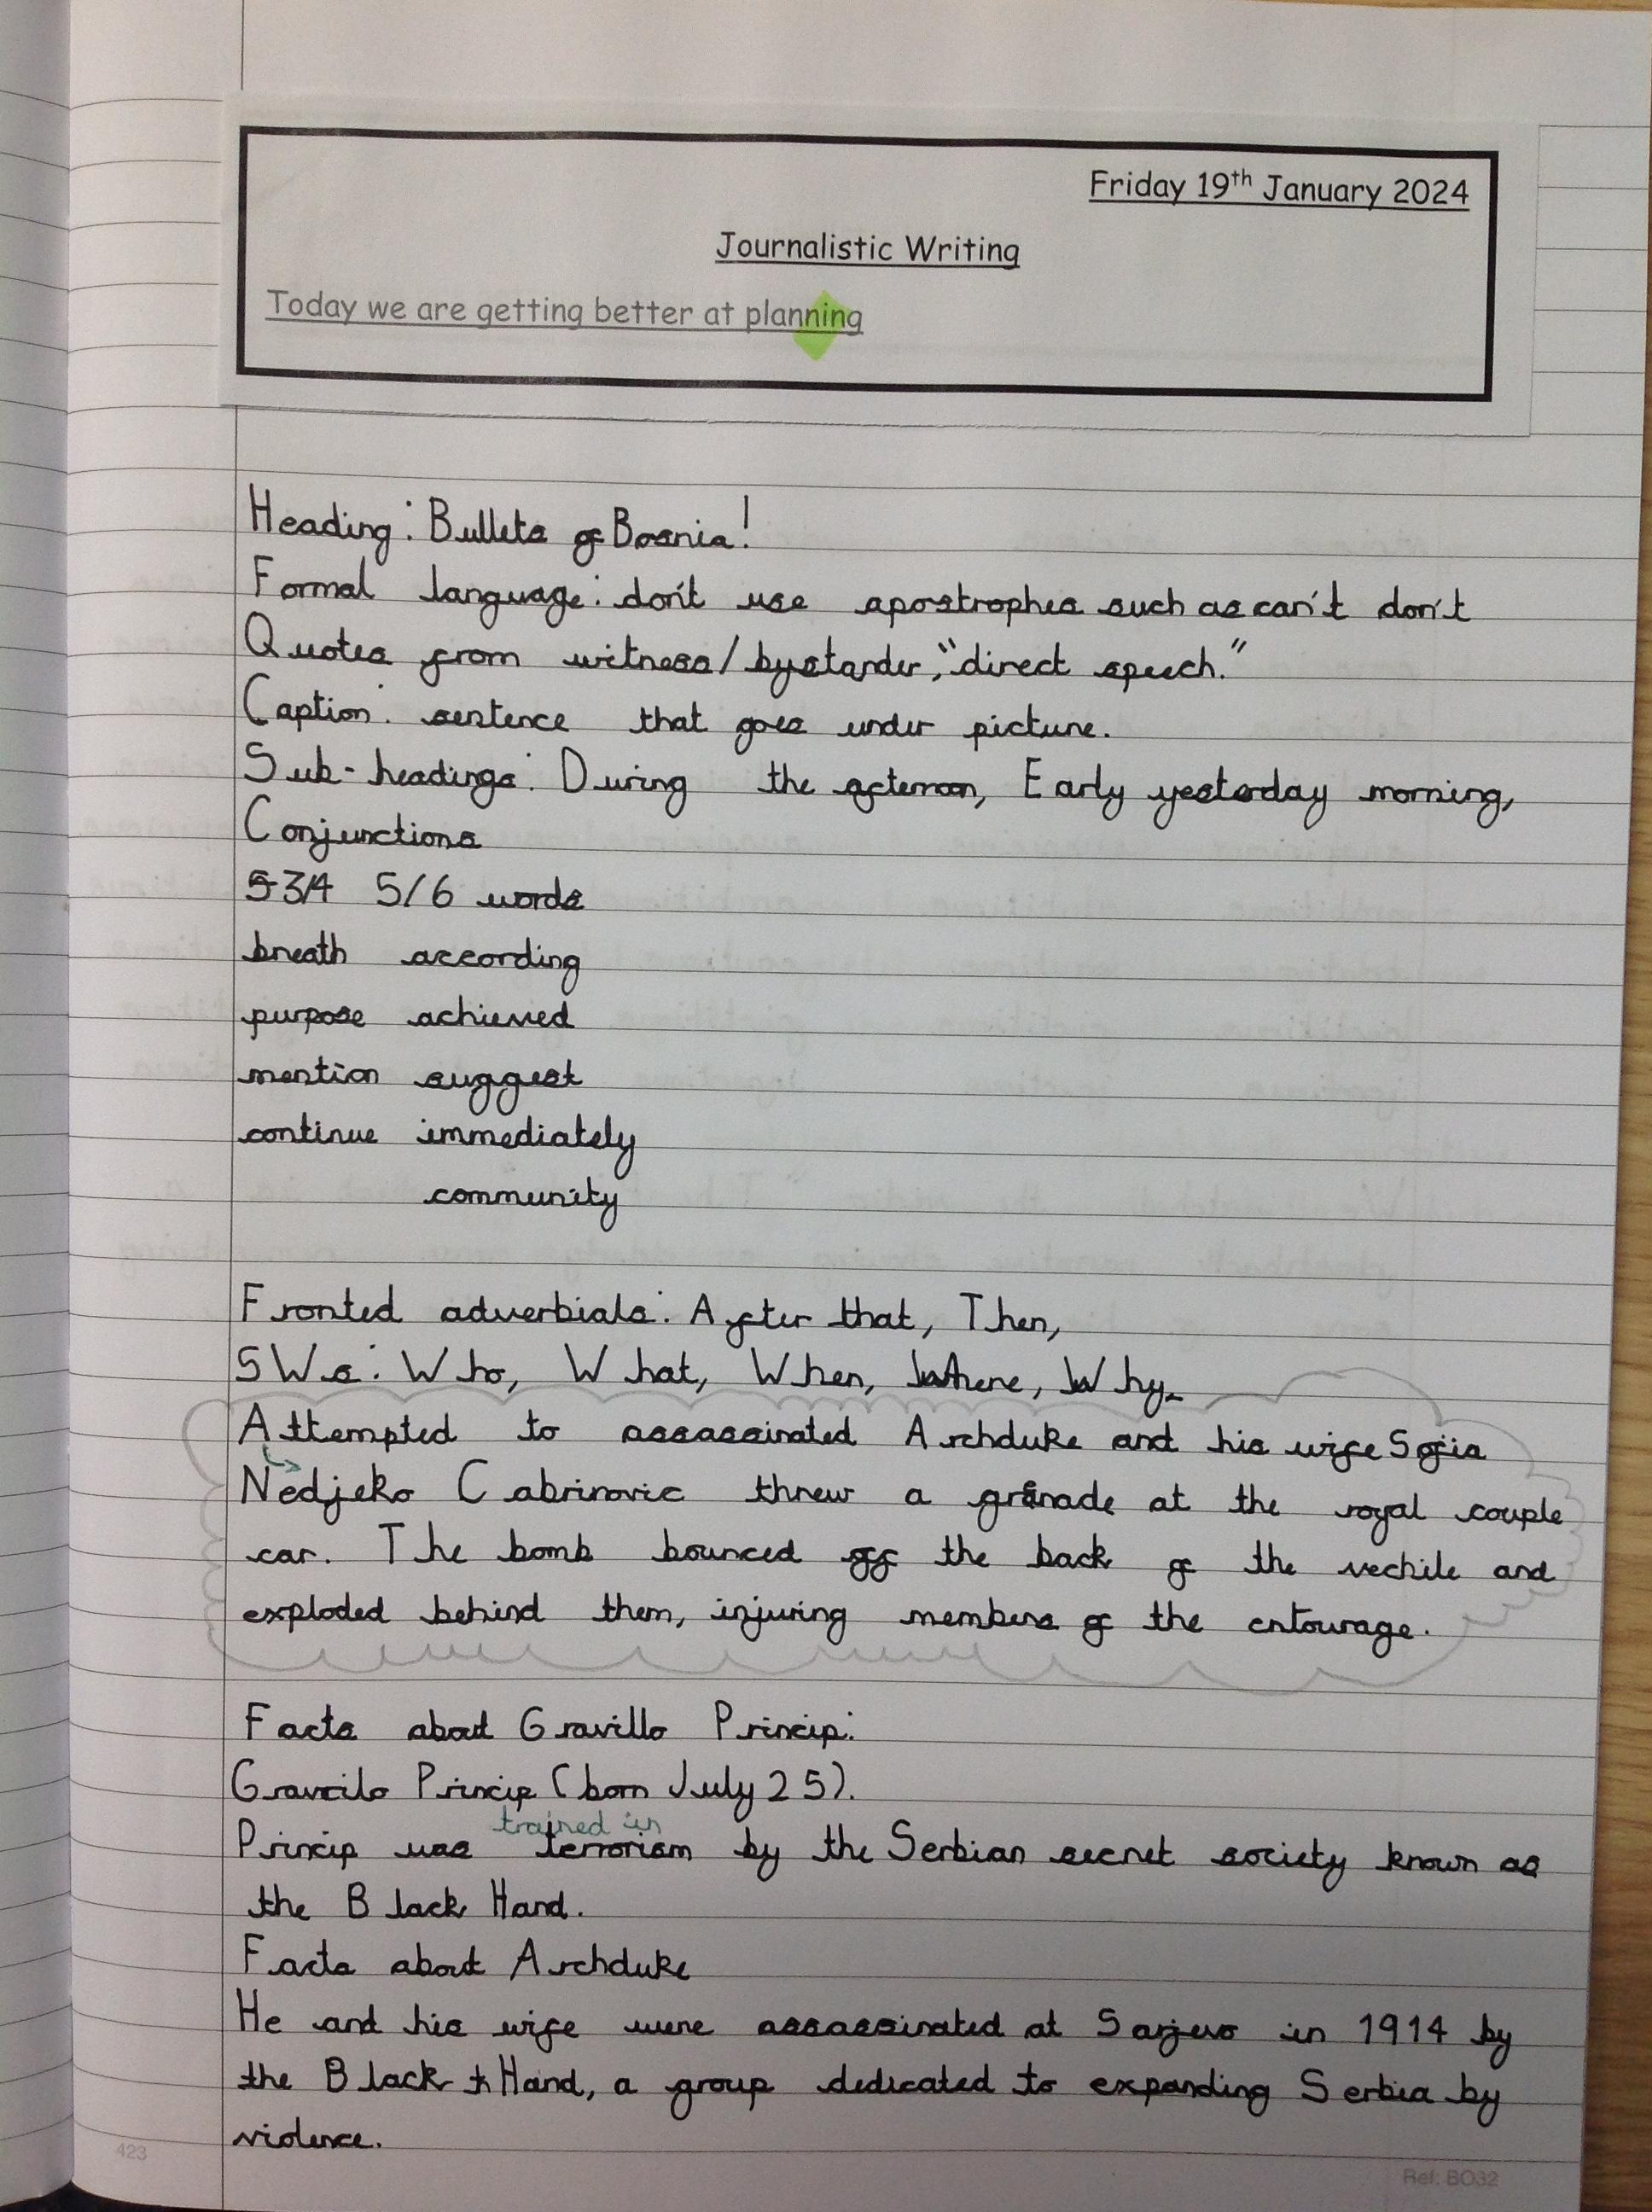 Friday 19th January 2024
Journalistic Writing
Today we are getting better at planning
Heading: Bullets of Bosnia!
Formal language: don't use apostrophes such as can't don't
Quotes from witness/bystander, "direct speech."
Caption: sentence that goes under picture.
Sub-headings: During the afternoon, Early yesterday morning,
Conjunctions
3/4 5/6 words
breath according
purpose achieved
mention suggest
continue immediately
community
Fronted adverbials: After that, Then,
5Ws: Who, What, When, Where, Why
Attempted to assassinated Archduke and his wife Sofia
Nedjeko Cabrinovic threw a granade at the royal couple
car. The bomb bounced off the back of the vechile and
exploded behind them, injuring members of the entourage.
Facts about Gravillo Princip:
Gravcilo Princip (born July 25).
trained in
Princip was terrorism by the Serbian secret society known as
the Black Hand.
Facts about Archduke
He and his wife were assassinated at Sarjevo in 1914 by
the Black Hand, a group dedicated to expanding Serbia by
violence.
423
Ref: BO32